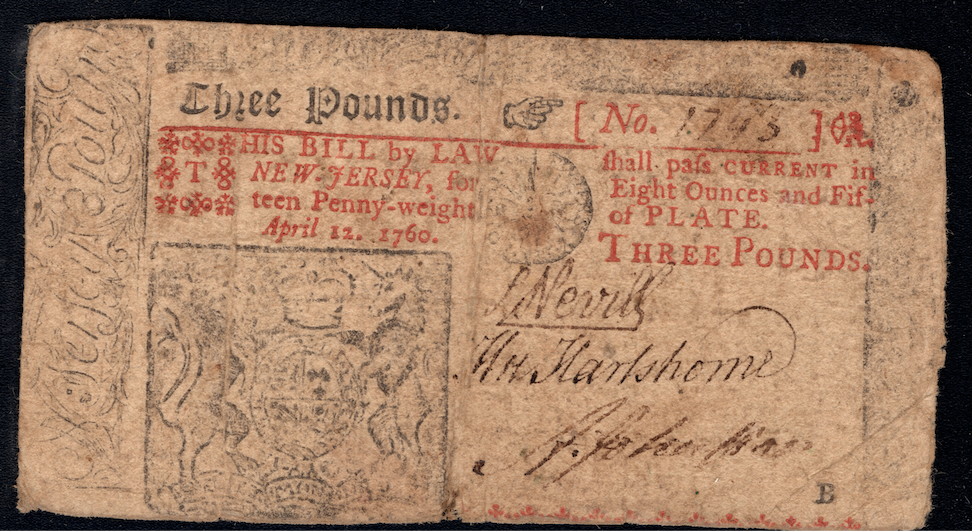 Three Pounds.
[ No. 1793 ]
THIS BILL by LAW shall pass CURRENT in
NEW-JERSEY, for Eight Ounces and Fif-
teen Penny-weight of PLATE.
April 12. 1760. THREE POUNDS.
S Nevill
Hh Hartshorne
A. Johnston
B